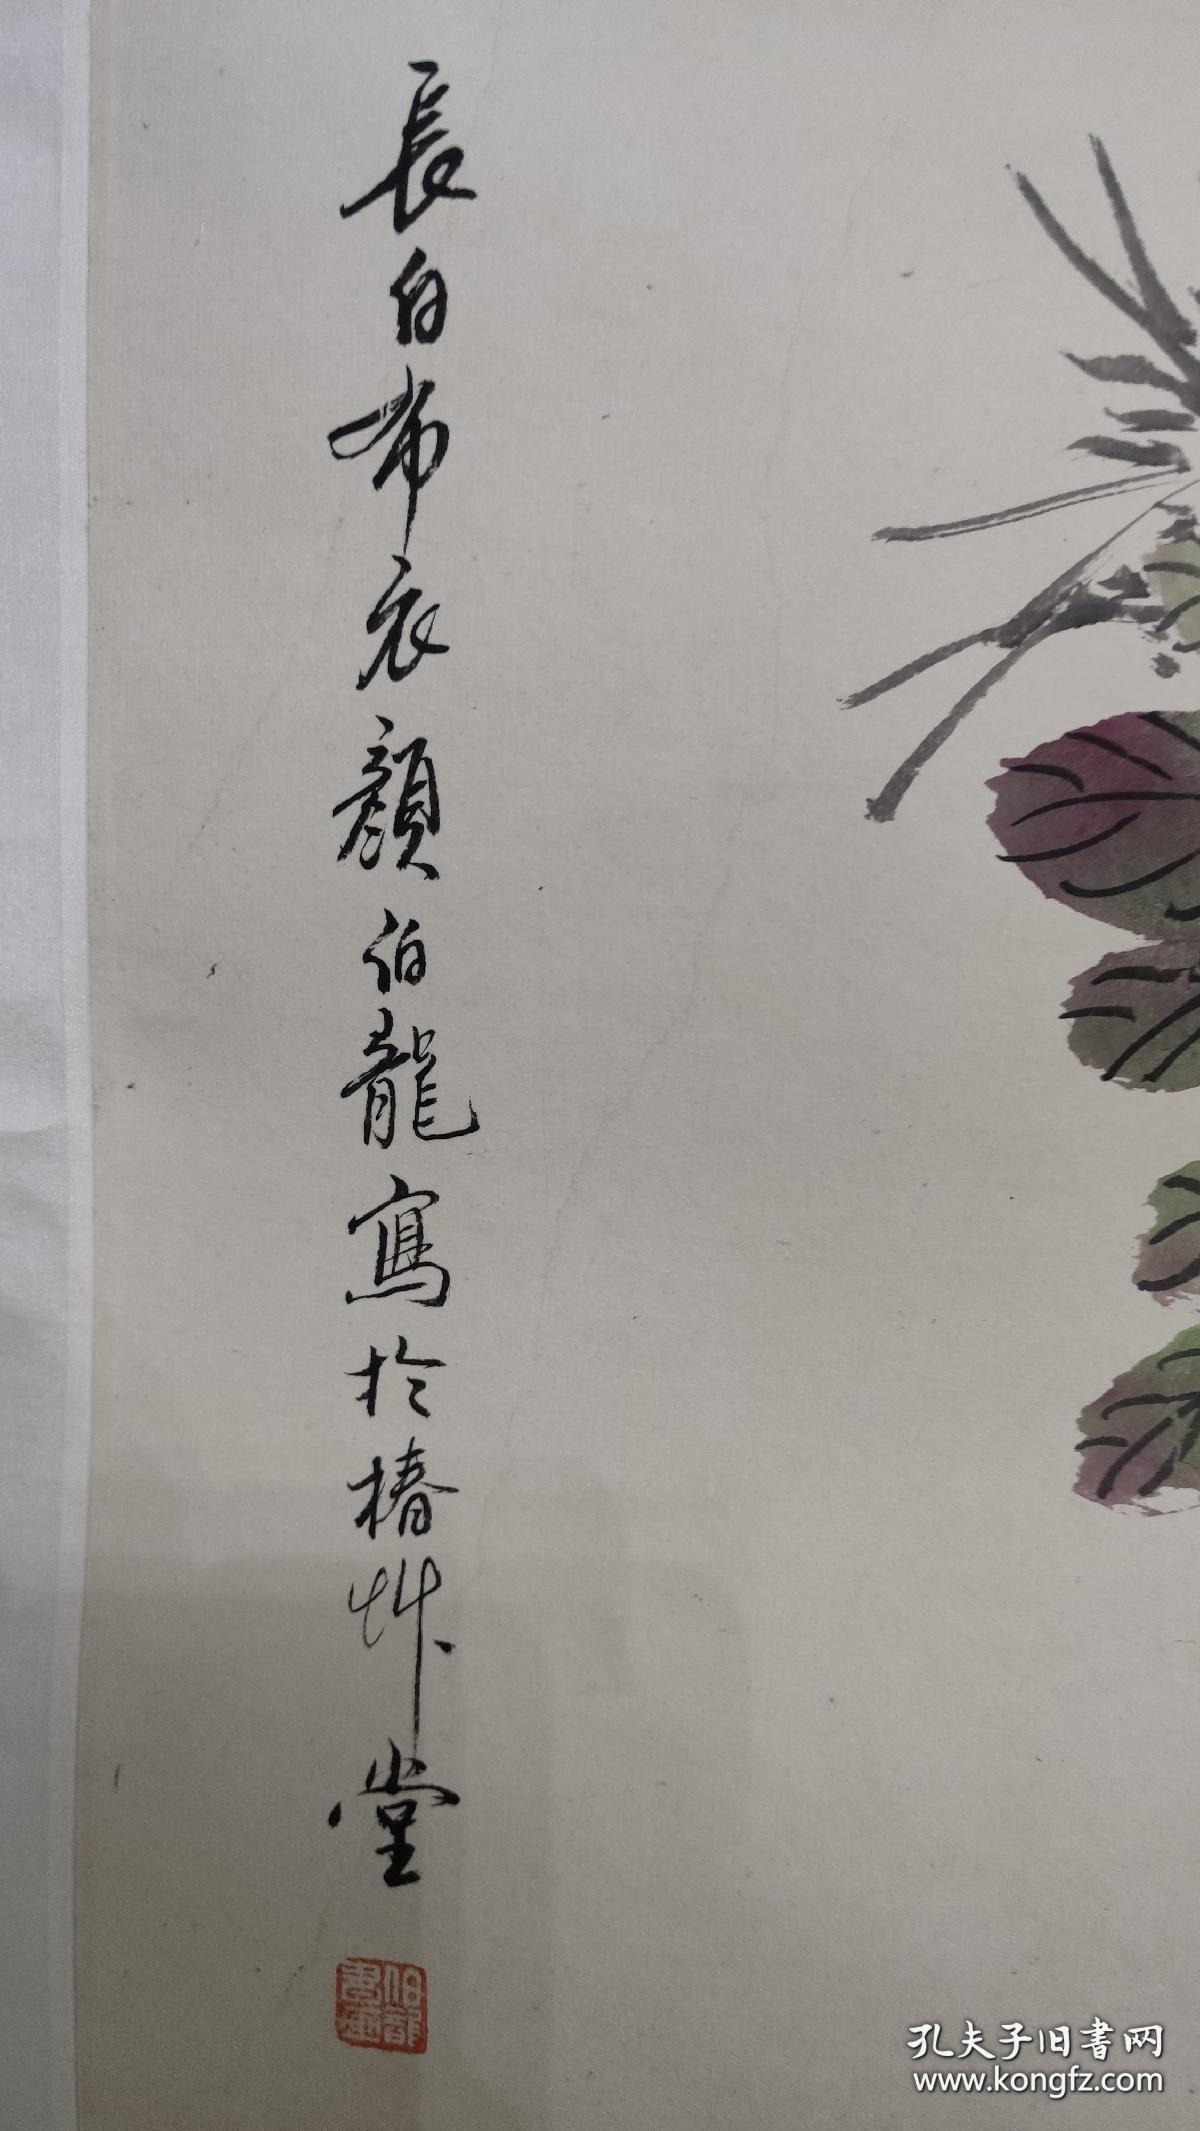 長白布衣顏伯龍寫於椿艸堂
伯龍書畫
孔夫子旧書网
www.kongfz.com